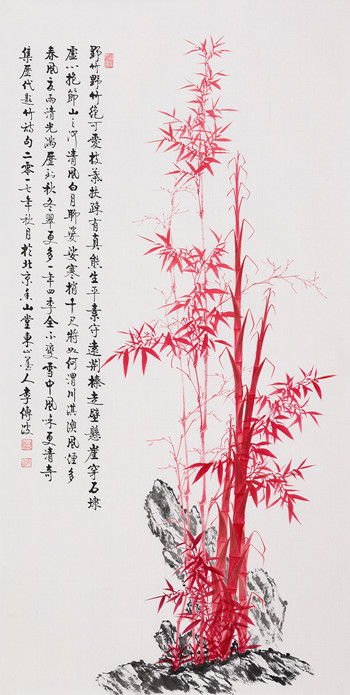 野竹野竹絶可愛枝葉扶疏有真態生平素守遠荆榛走壁懸崖穿石埭
虛心抱節山之河清風白月聊婆娑寒梢千尺將如何渭川淇澳風煙多
春風夏雨清光滿歷到秋冬翠更多一年四季全不變雪中風采更清奇
集歷代題竹詩句二零一七年秋月於北京香山堂東山人李傳波